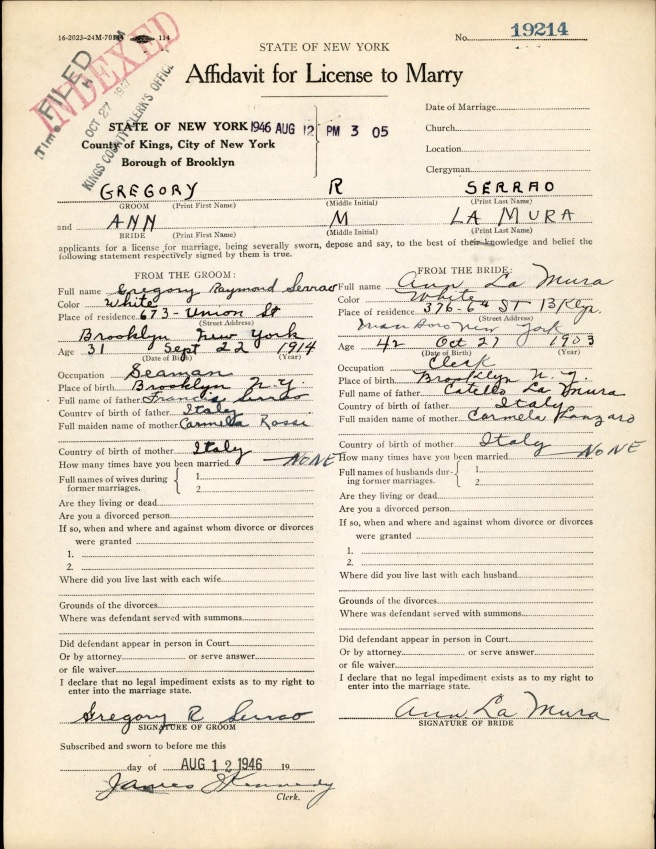 16-2023-24M-701
114
No. 19214
FILED
INDEXED
OCT 27
KINGS COUNTY CLERK'S OFFICE
STATE OF NEW YORK
Affidavit for License to Marry
STATE OF NEW YORK 1946 AUG 12 PM 3 05
County of Kings, City of New York
Borough of Brooklyn
Date of Marriage
Church
Location
Clergyman
GREGORY R SERRAO
GROOM (Print First Name) (Middle Initial) (Print Last Name)
and ANN M LA MURA
BRIDE (Print First Name) (Middle Initial) (Print Last Name)
applicants for a license for marriage, being severally sworn, depose and say, to the best of their knowledge and belief the
following statement respectively signed by them is true.
FROM THE GROOM:
Full name Gregory Raymond Serrao
Color White
Place of residence 673-Union St
(Street Address)
Brooklyn New York
Age 31 Sept 22 1914
(Date of Birth) (Year)
Occupation Seaman
Place of birth Brooklyn N.Y.
Full name of father Francis Serrao
Country of birth of father Italy
Full maiden name of mother Carmela Rossi
Country of birth of mother Italy
How many times have you been married NONE
Full names of wives during
former marriages.
1.
2.
Are they living or dead
Are you a divorced person
If so, when and where and against whom divorce or divorces
were granted
1.
2.
Where did you live last with each wife
Grounds of the divorces
Where was defendant served with summons
Did defendant appear in person in Court
Or by attorney or serve answer
or file waiver
I declare that no legal impediment exists as to my right to
enter into the marriage state.
Gregory R Serrao
SIGNATURE OF GROOM
Subscribed and sworn to before me this
day of AUG 12 1946 19
James J Kennedy
Clerk.
FROM THE BRIDE:
Full name Ann La Mura
Color White
Place of residence 376-6th ST Bklyn.
(Street Address)
New York
Age 42 Oct 27 1903
(Date of Birth) (Year)
Occupation Clerk
Place of birth Brooklyn N.Y.
Full name of father Catello La Mura
Country of birth of father Italy
Full maiden name of mother Carmela Lanzaro
Country of birth of mother Italy
How many times have you been married NONE
Full names of husbands dur-
ing former marriages.
1.
2.
Are they living or dead
Are you a divorced person
If so, when and where and against whom divorce or divorces
were granted
1.
2.
Where did you live last with each husband
Grounds of the divorces
Where was defendant served with summons
Did defendant appear in person in Court
Or by attorney or serve answer
or file waiver
I declare that no legal impediment exists as to my right to
enter into the marriage state.
Ann La Mura
SIGNATURE OF BRIDE